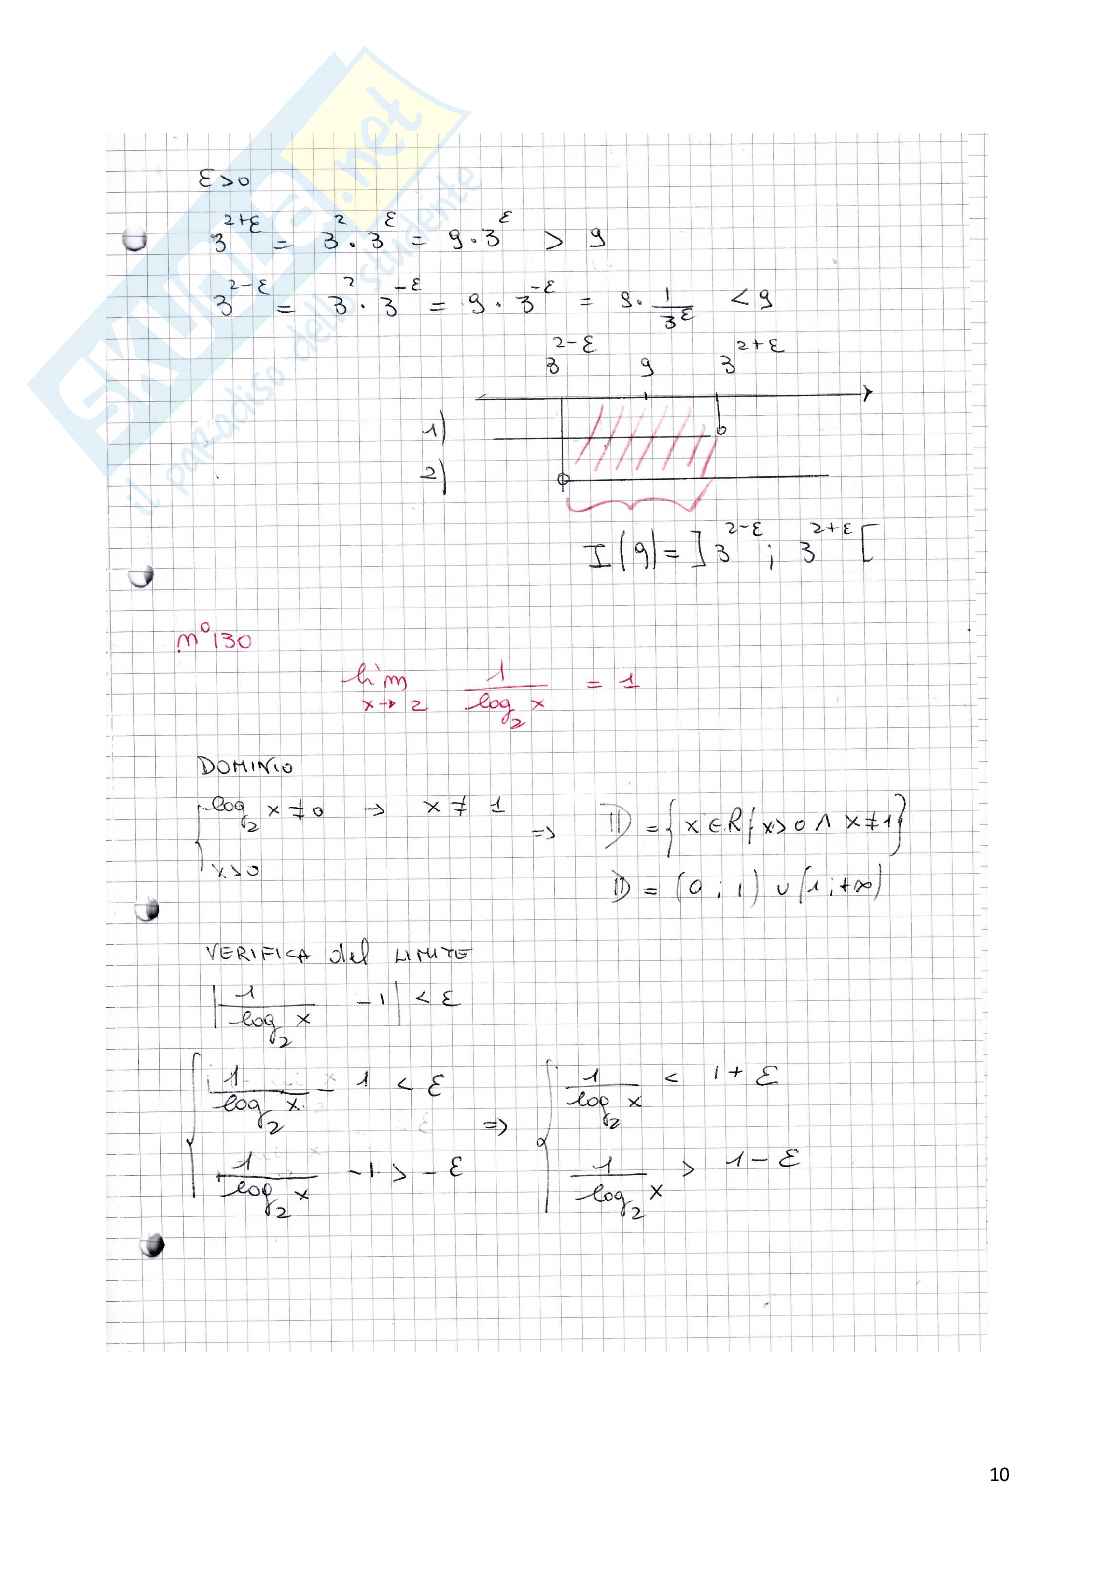 SKUOLA.net
il paradiso dello studente
ε>0
3^{2+ε} = 3^2 · 3^ε = 9·3^ε > 9
3^{2-ε} = 3^2 · 3^{-ε} = 9 · 3^{-ε} = 9· 1/3^ε < 9
3^{2-ε} 9 3^{2+ε}
1)
2)
I(9) = ]3^{2-ε} ; 3^{2+ε}[
n°130
lim x→2 1/log_2 x = 1
DOMINIO
log_2 x ≠ 0 → x ≠ 1
x>0
=> D = {x∈R/ x>0 ∧ x≠1}
D = (0 ; 1) ∪ (1 ; +∞)
VERIFICA del LIMITE
|1/log_2 x - 1| < ε
1/log_2 x - 1 < ε => 1/log_2 x < 1+ε
1/log_2 x - 1 > -ε 1/log_2 x > 1-ε
10